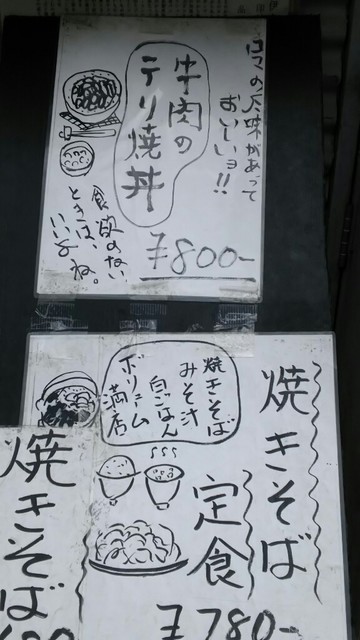 ゴマの风味があって
おいしいョ!!
牛肉の
テリ焼丼
食欲のない
ときは、
いいよね。
¥800-
焼きそば
定食
焼きそば
みそ汁
白ごはん
ボリューム
満店
¥780-
焼きそば